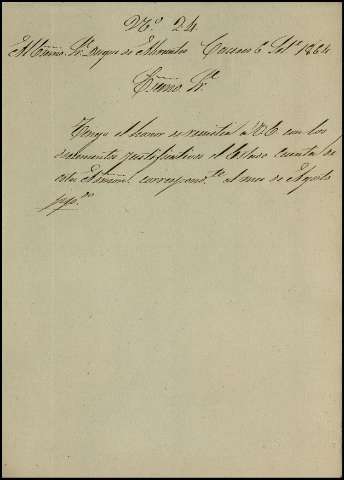 Nº 24
Al Excmo. Sr. Duque de Abrantes Caceres 6 Set.e 1864
Excmo. Sr.
Tengo el honor de remitir a V.E. con los
documentos justificativos el Estado cuenta de
esta Admon. correspond.te al mes de Agosto